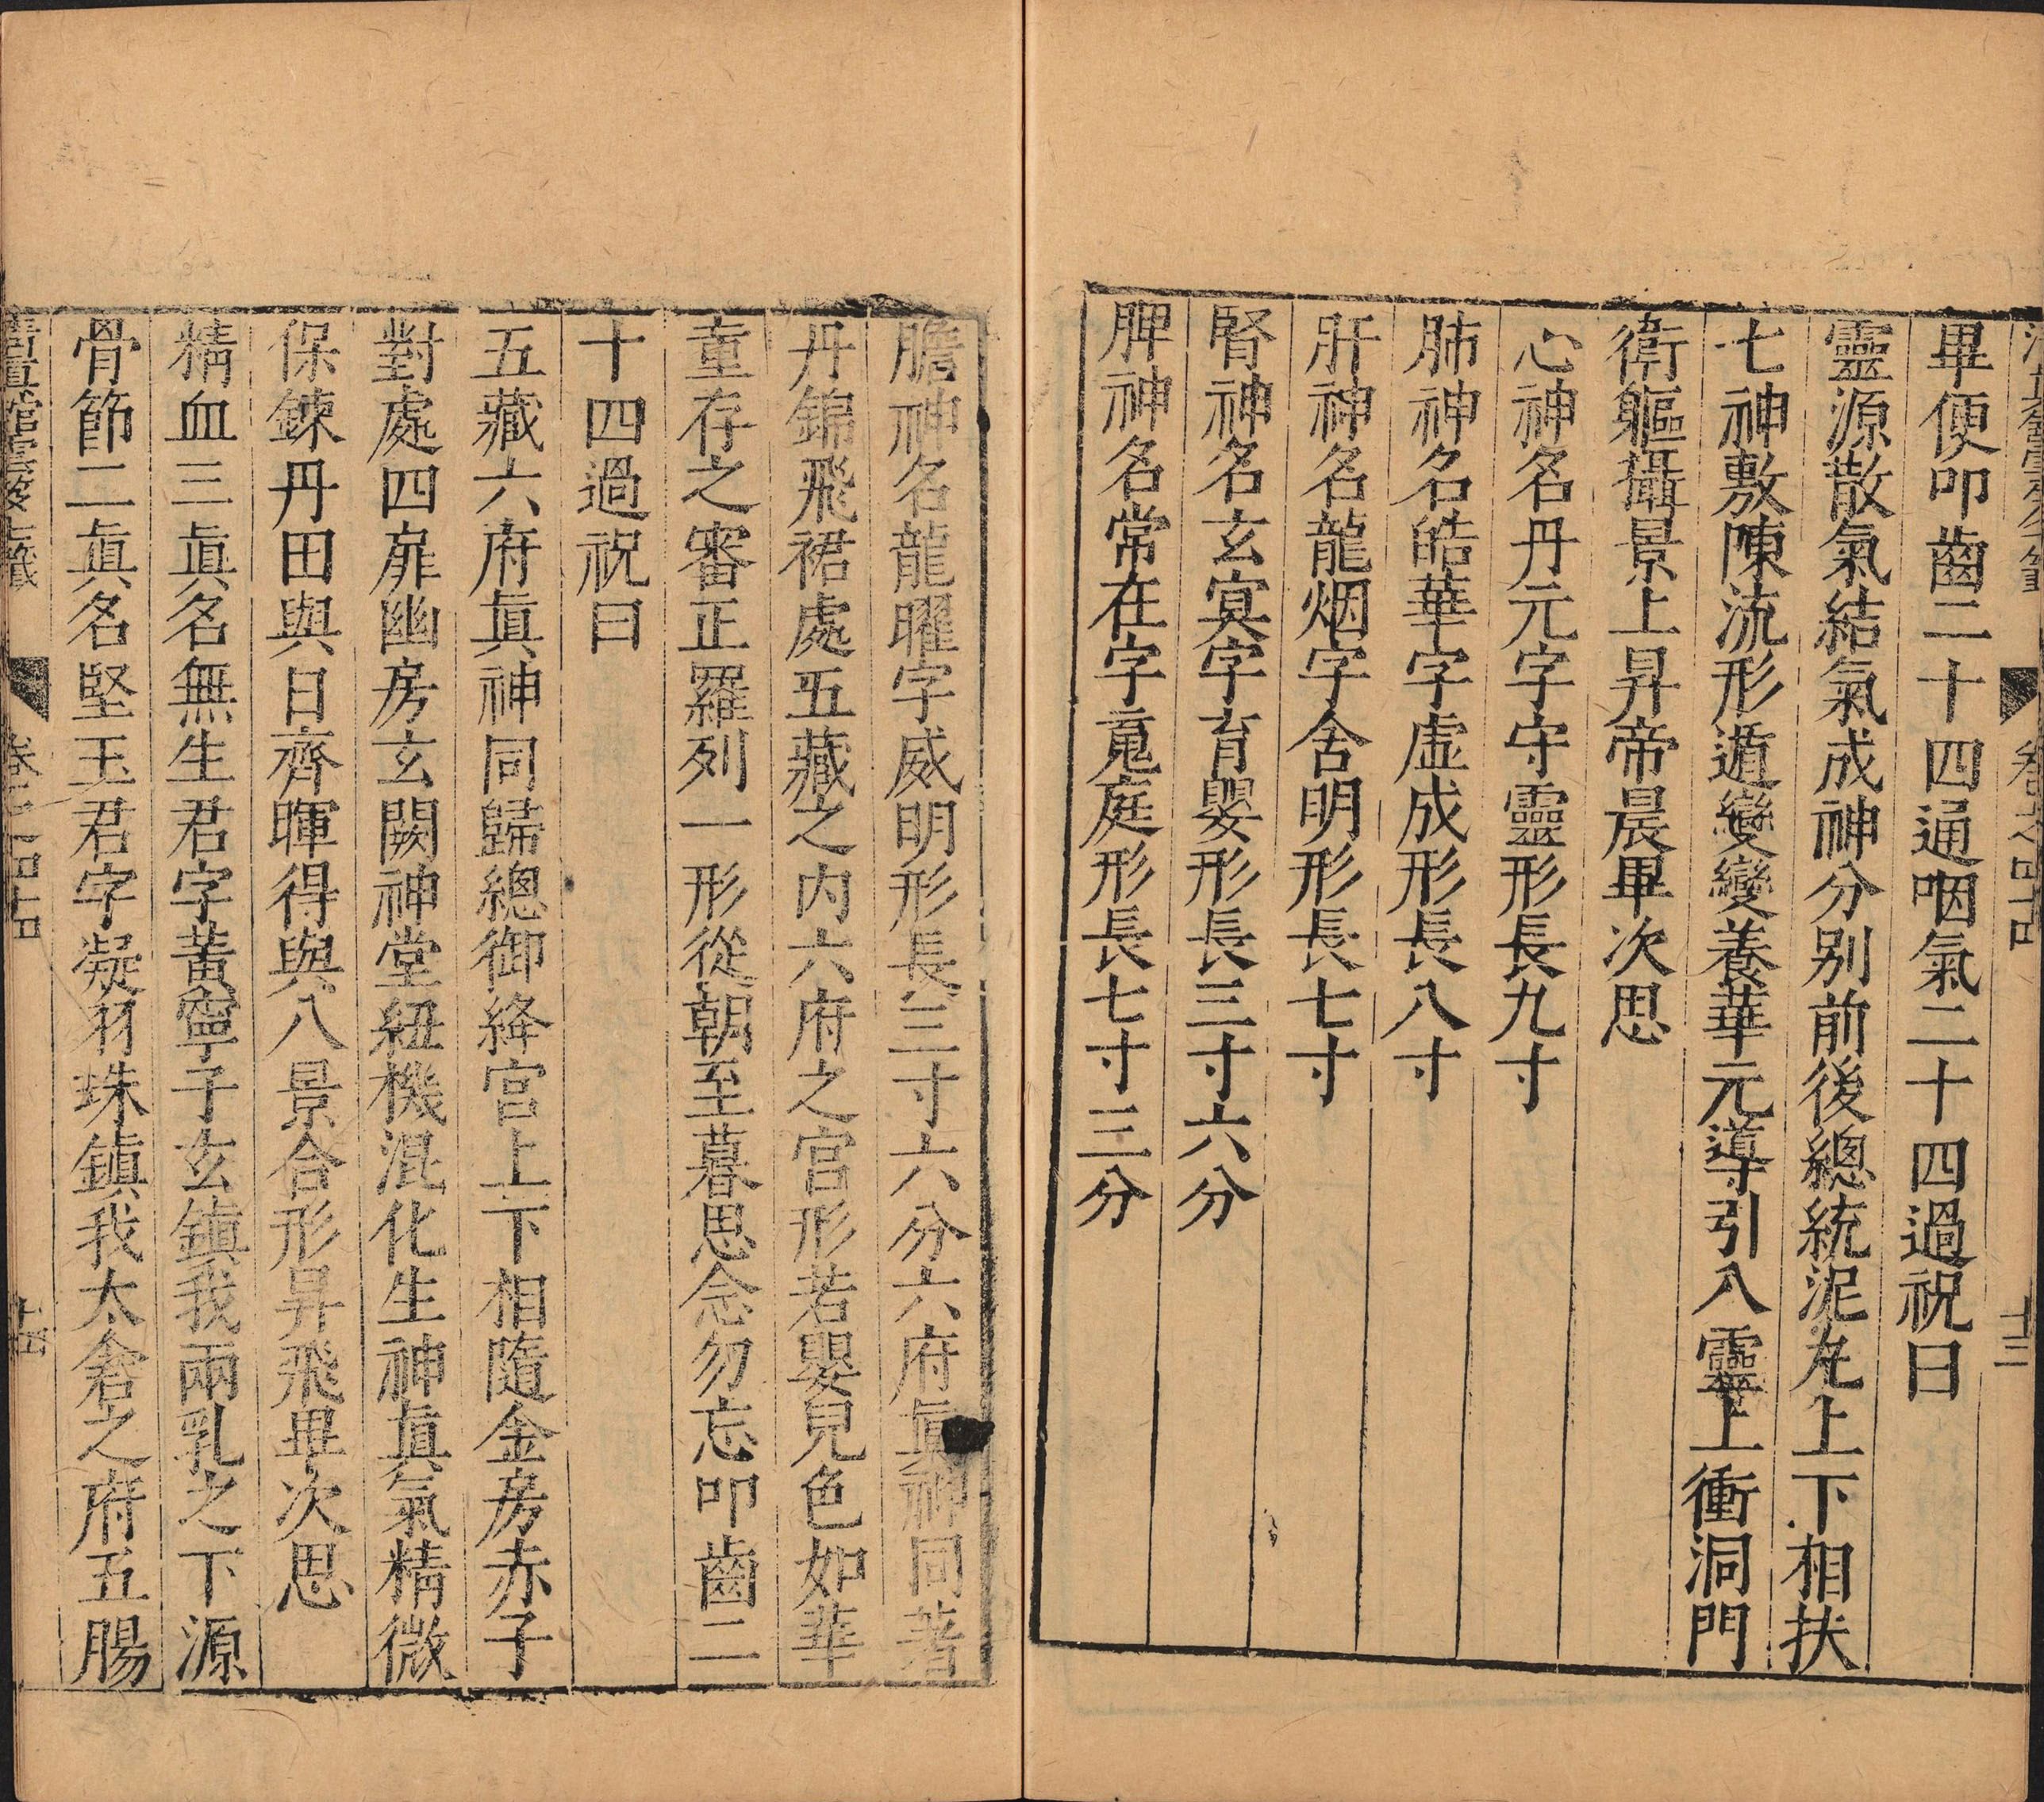 畢便叩齒二十四通咽氣二十四過祝曰
靈源散氣結氣成神分别前後總統泥丸上下相扶
七神敷陳流形遁變變養華元導引八靈上衝洞門
衛軀攝景上昇帝晨畢次思
心神名丹元字守靈形長九寸
肺神名皓華字虛成形長八寸
肝神名龍烟字含明形長七寸
腎神名玄冥字育嬰形長三寸六分
脾神名常在字䰟庭形長七寸三分
膽神名龍曜字威明形長三寸六分六府眞神同著
丹錦飛裙處五藏之内六府之宫形若嬰兒色如華
童存之審正羅列一形從朝至暮思念勿忘叩齒二
十四過祝曰
五藏六府眞神同歸總御絳宫上下相隨金房赤子
對處四扉幽房玄闕神堂紐機混化生神眞氣精微
保錬丹田與日齊暉得與八景合形昇飛畢次思
精血三眞名無生君字黃寧子玄鎮我兩乳之下源
骨節二眞名堅玉君字凝羽珠鎮我太倉之府五腸